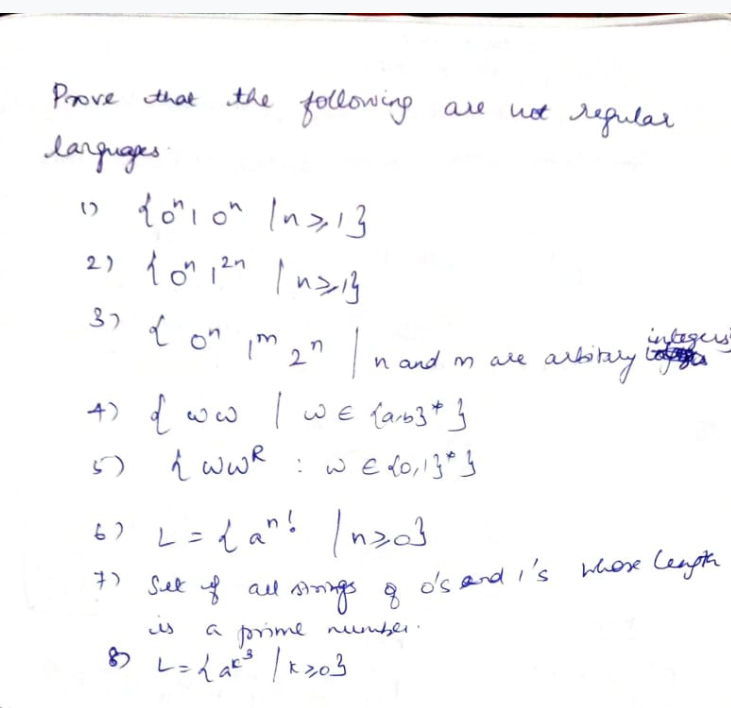 Prove that the following are not regular
languages.
1) {0ⁿ1 0ⁿ | n ≥ 1}
2) {0ⁿ 1²ⁿ | n ≥ 1}
3) { 0ⁿ 1ᵐ 2ⁿ | n and m are arbitary integers
4) { ww | w ∈ {a,b}* }
5) { wwᴿ : w ∈ {0,1}* }
6) L = { aⁿ! | n ≥ 0}
7) Set of all strings of 0's and 1's whose length
is a prime number.
8) L = {a^k³ | k ≥ 0}